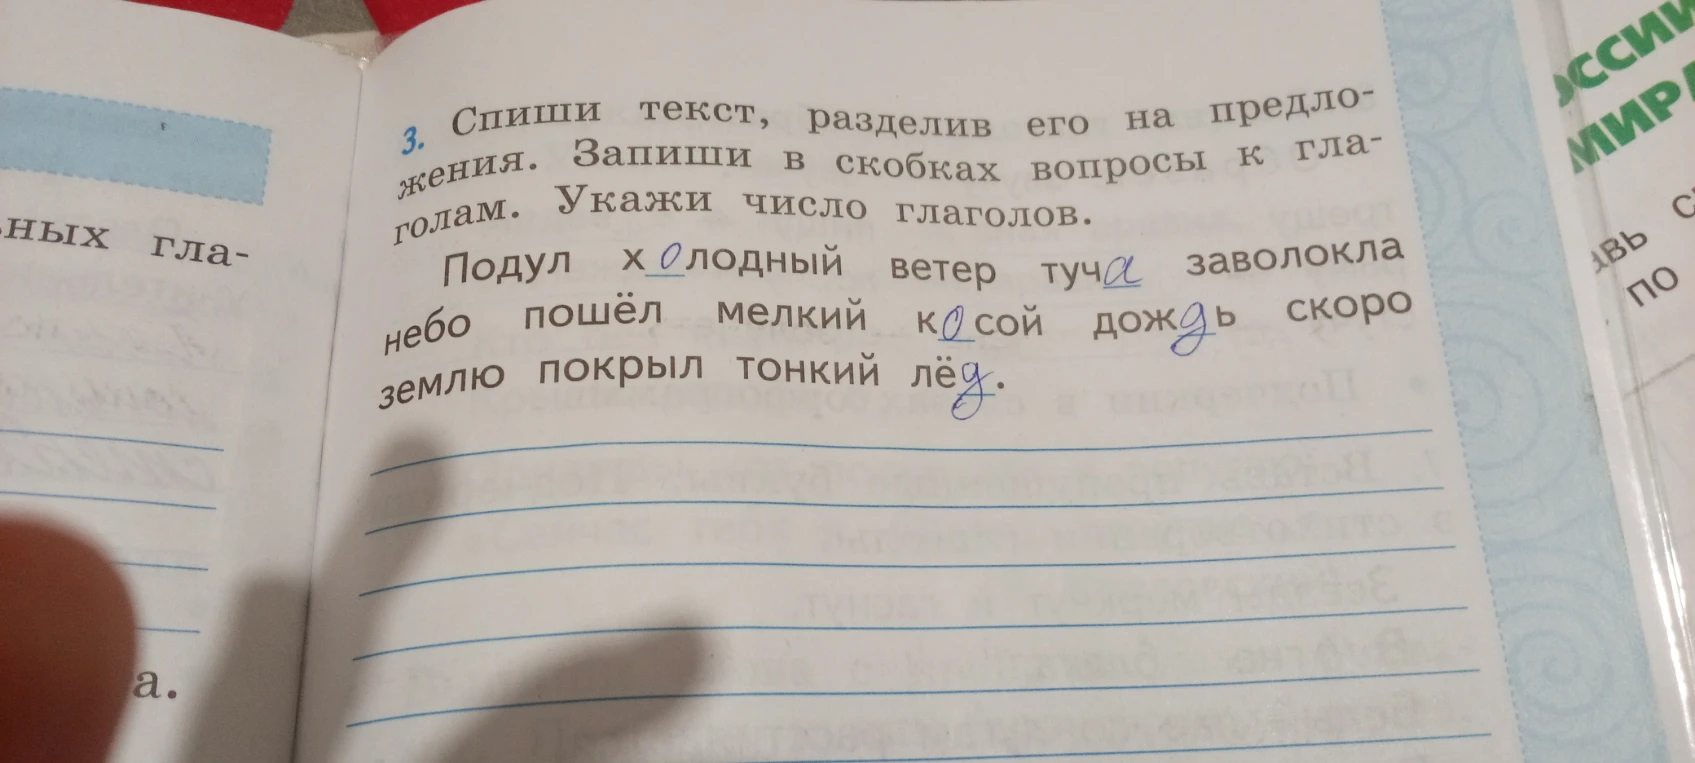 ных гла-
а.
3. Спиши текст, разделив его на предло-
жения. Запиши в скобках вопросы к гла-
голам. Укажи число глаголов.
Подул холодный ветер туча заволокла
небо пошёл мелкий косой дождь скоро
землю покрыл тонкий лёд.
ОССИИ
МИРА
авь
по